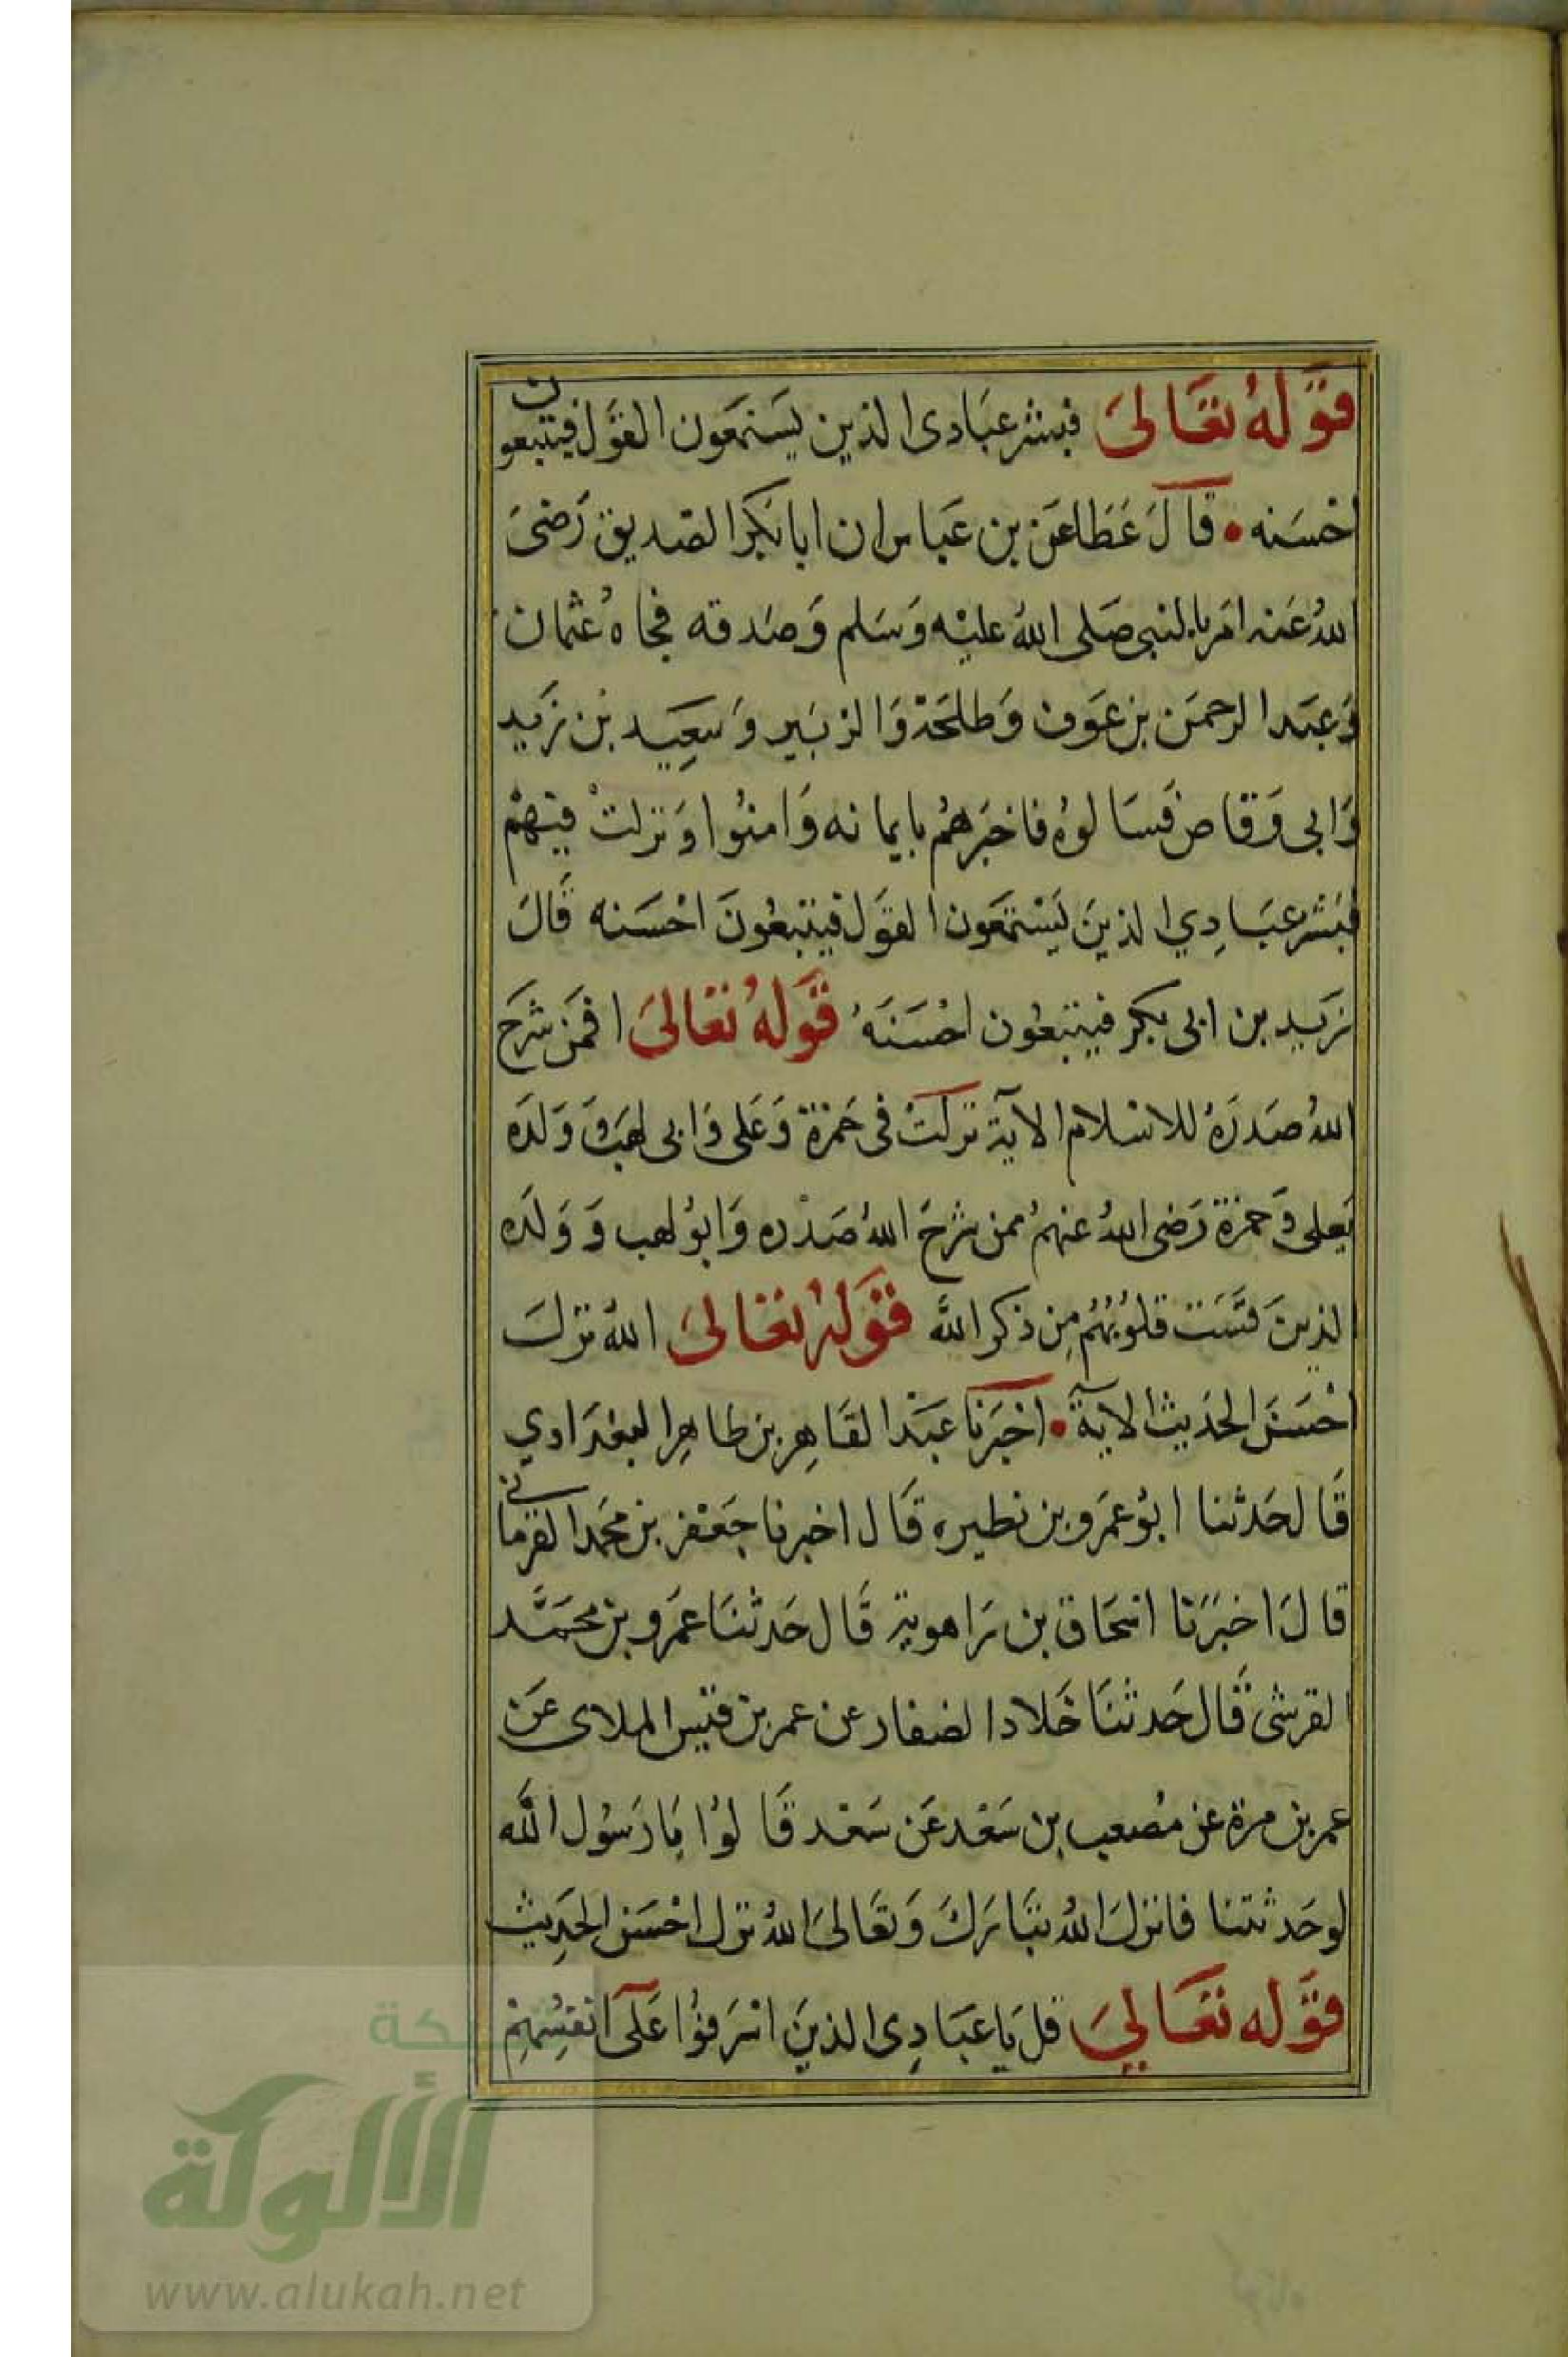 قَوْلهُ تعَالىَ فبشر عبَادى الذين يَستمَعون القوَل فيتبعون
احْسَنه • قالَ عَطَا عَن بن عَباس ان ابا بَكر الصديق رَضىَ
اللهُ عَنه امَن بالنبى صَلى اللهُ عليْه وَسَلم وَصَدقه فجاهُ عُثمان
وَعبَد الرحمَن بن عوَف وَطلحَة وَالزبَير وَسَعِيَد بن زَيد
وَابى وَقاص فسَالوهُ فاخبَرهُم بايمانه وَامنوُا وَنزلتْ فيهمْ
فبَشر عبَادِي الذينَ يَسْتمَعون القَول فيتبعُونَ احْسَنه قَالَ
يزَيد بن ابى بكر فيتبعُون احْسَنَهُ قَوْلهُ تعَالىَ افمَن شرَح
اللهُ صَدرَهُ للاسْلام الاية نزلتْ فى حَمزة وَعَلى وَابى لهَب وَوَلدَه
فعلى وَحمزة رَضى اللهُ عنهمُ ممن شرحَ اللهُ صَدْره وَابوُ لهب وَوَلده
الذينَ قسَت قلوُبهُمُ مِن ذكر اللهَّ قَوَلهُ تعَالىَ اللهُ نزلَ
احْسَنَ الحدَيث الايَة • اخْبَرنَا عَبْد القَاهِر بن طاهِر البغدَادي
قَال حَدثنا ابوُ عمَرو بن نطيره قَال اخبرنا جَعْفر بن محمَد الفرمانى
قالَ اخبَرَنا اسْحَاق بن رَاهوية قَال حَدثنَا عمَرو بن محمَّد
القرشى قَال حَدثنَا خَلاد الصفار عن عمر بن قيس الملاى عَن
عمر بن مرة عن مُصعب بن سَعْد عَن سَعْد قَالوُا يَا رَسُول اللَّه
لو حَدثتنا فانزلَ اللهُ تبَاركَ وَتعَالىَ اللهُ نزل احْسَن الحَدِيث
قَوَله تعَالِىَ قلَ يَا عبَادِى الذينَ اسْرَفوُا عَلَى انفِسُهِمْ
شبكة
الألوكة
www.alukah.net